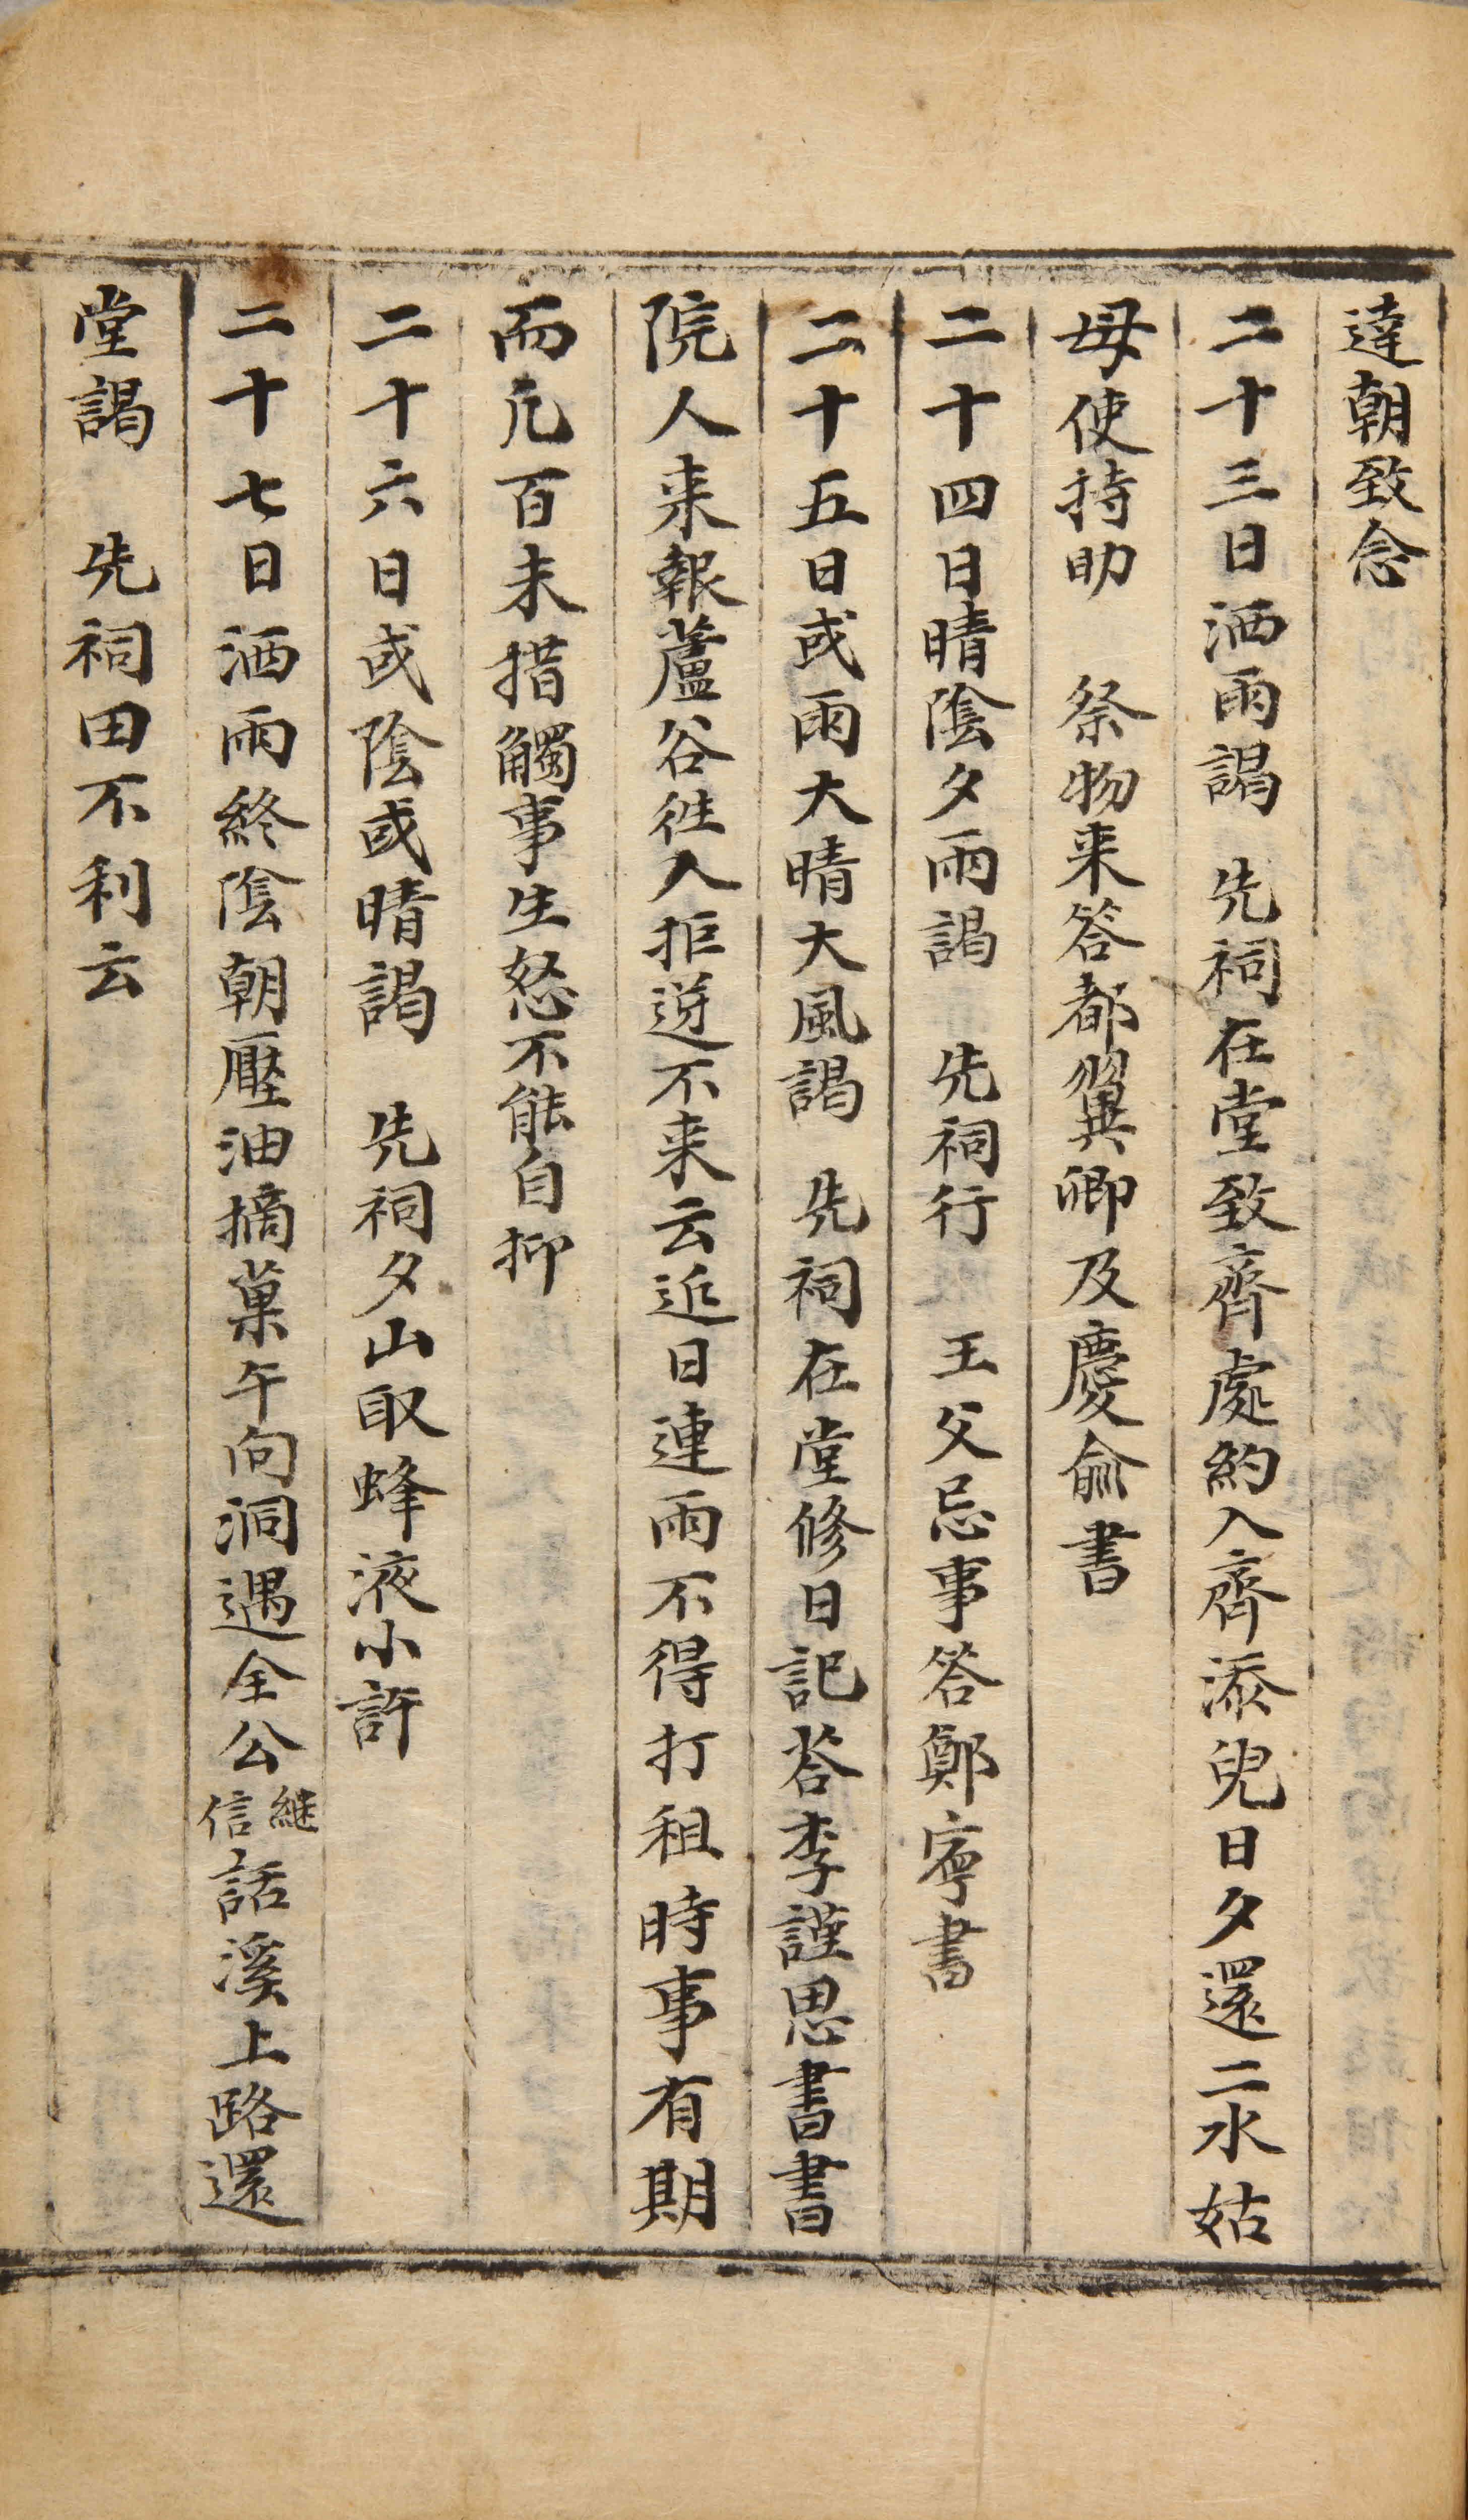 達朝致念
二十三日洒雨謁　先祠在堂致齊處約入齊添兒日夕還二水姑
母使持助　祭物来答都翼卿及慶兪書
二十四日晴陰夕雨謁　先祠行　王父忌事答鄭寧書
二十五日或雨大晴大風謁　先祠在堂修日記答李謹思書書
院人来報蘆谷徃人拒逆不来云近日連雨不得打租時事有期
而凡百未措觸事生怒不能自抑
二十六日或陰或晴謁　先祠夕山取蜂液小許
二十七日洒雨終陰朝壓油摘菓午向洞遇全公継信話溪上路還
堂謁　先祠田不利云